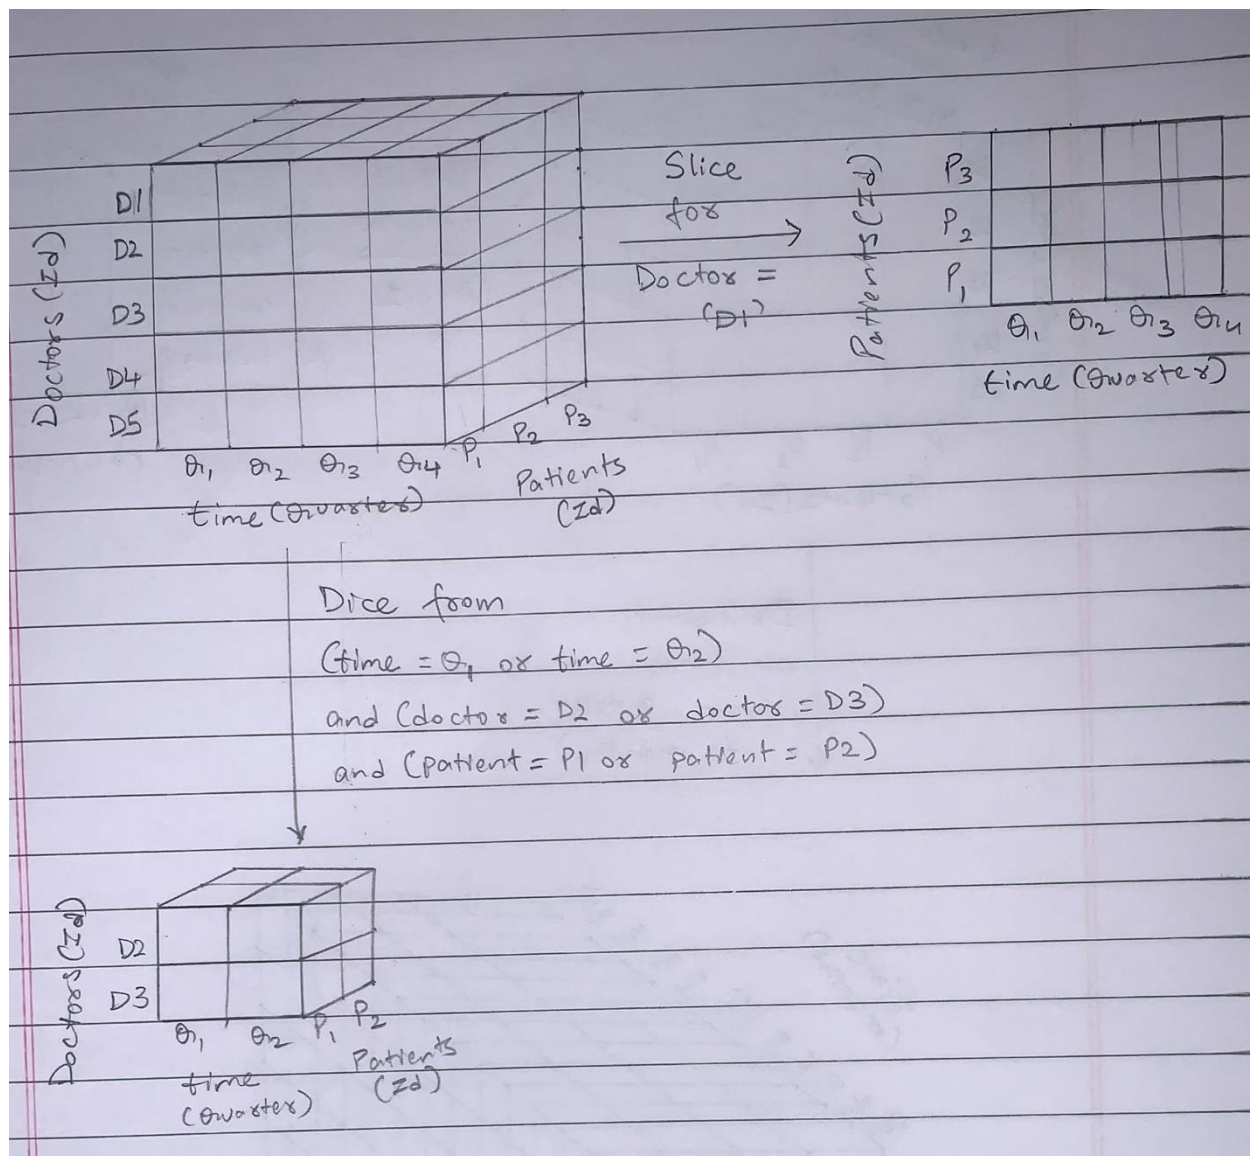 Doctors (Id)
D1
D2
D3
D4
D5
Q1 Q2 Q3 Q4
time (Quarter)
P1 P2 P3
Patients
(Id)
Slice
for
Doctor =
"D1"
Patients (Id)
P3
P2
P1
Q1 Q2 Q3 Q4
time (Quarter)
Dice from
(time = Q1 or time = Q2)
and (doctor = D2 or doctor = D3)
and (patient = P1 or patient = P2)
Doctors (Id)
D2
D3
Q1 Q2
time
(Quarter)
P1 P2
Patients
(Id)